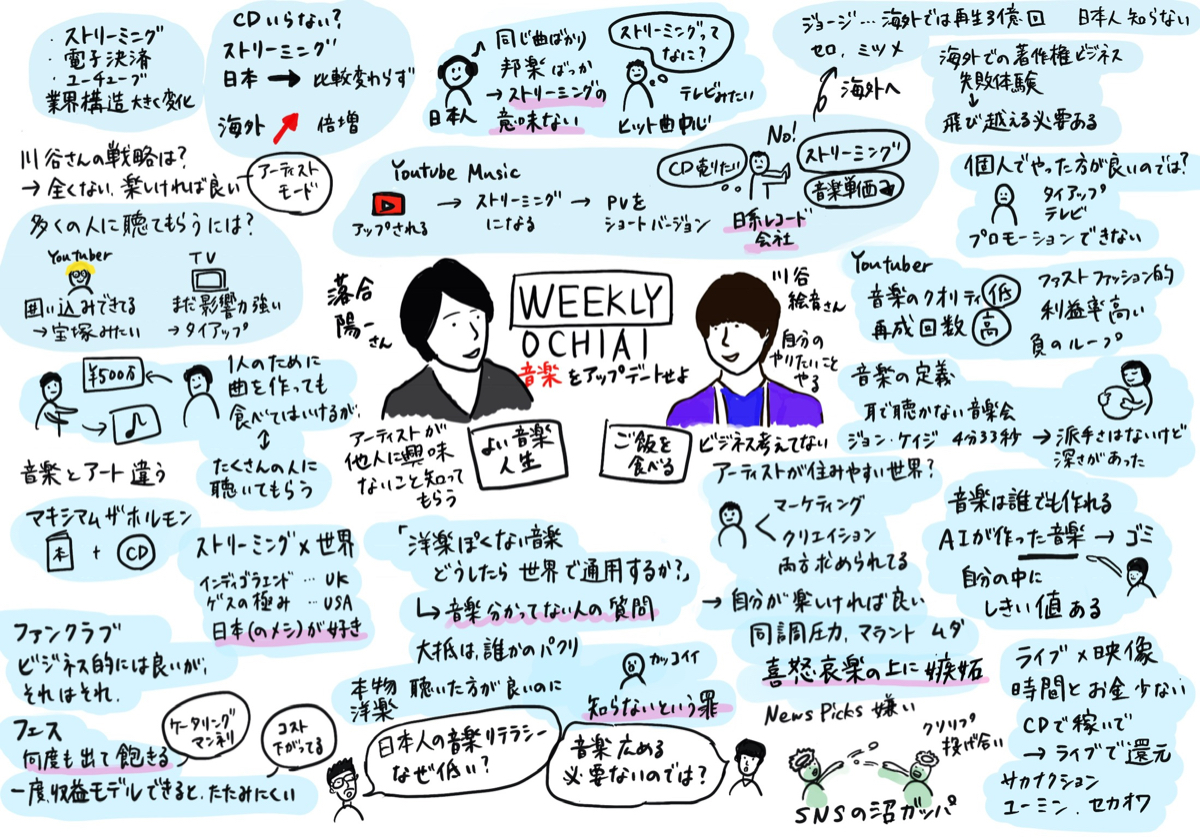 ・ストリーミング
・電子決済
・ユーチューブ
業界構造大きく変化
CDいらない?
ストリーミング
日本 → 比較変わらず
海外 倍増
同じ曲ばかり
邦楽ばっか
→ストリーミングの
意味ない
日本人
ストリーミングって
なに?
テレビみたい
ヒット曲中心
ジョージ…海外では再生3億回 日本人知らない
セロ、ミツメ
海外へ
海外での著作権ビジネス
失敗体験
↓
飛び越える必要ある
川谷さんの戦略は?
→全くない、楽しければ良い
アーティスト
モード
Youtube Music
アップされる
→ ストリーミング
になる
→ PVを
ショートバージョン
CD売りたい
No!
ストリーミング
音楽単価
日系レコード
会社
個人でやった方が良いのでは?
タイアップ
テレビ
プロモーションできない
多くの人に聴てもらうには?
Youtuber
囲い込みできてる
→宝塚みたい
TV
まだ影響力強い
→タイアップ
落合
陽一さん
WEEKLY
OCHIAI
音楽をアップデートせよ
川谷
絵音さん
自分の
やりたいこと
やる
Youtuber
音楽のクオリティ 低
再成回数 高
ファストファッション的
利益率高い
負のループ
¥500万
1人のために
曲を作っても
食べてはいけるが、
↕
たくさんの人に
聴いてもらう
音楽とアート違う
アーティストが
他人に興味
ないこと知って
もらう
よい音楽
人生
ご飯を
食べる
ビジネス考えてない
音楽の定義
耳で聴かない音楽会
ジョン・ケイジ 4分33秒
→派手さはないけど
深さがあった
アーティストが住みやすい世界?
マーケティング
クリエイション
両方求められてる
→自分が楽しければ良い
同調圧力、マウント ムダ
喜怒哀楽の上に嫉妬
音楽は誰でも作れる
AIが作った音楽 → ゴミ
自分の中に
しきい値ある
マキシマムザホルモン
本 + CD
ストリーミング×世界
インディゴラエンド … UK
ゲスの極み … USA
日本(のメシ)が好き
「洋楽ぽくない音楽
どうしたら世界で通用するか?」
↳音楽分かってない人の質問
大抵は、誰かのパクリ
本物
洋楽
聴いた方が良いのに
カッコイイ
知らないという罪
ファンクラブ
ビジネス的には良いが、
それはそれ.
フェス
何度も出て飽きる
一度、収益モデルできると、たたみにくい
ケータリング
マンネリ
コスト
下がってる
日本人の音楽リテラシー
なぜ低い?
音楽広める
必要ないのでは?
News Picks 嫌い
クソリプ
投げ合い
SNSの沼ガッパ
ライブ×映像
時間とお金少ない
CDで稼いで
→ライブで還元
サカナクション
ユーミン、セカオワ